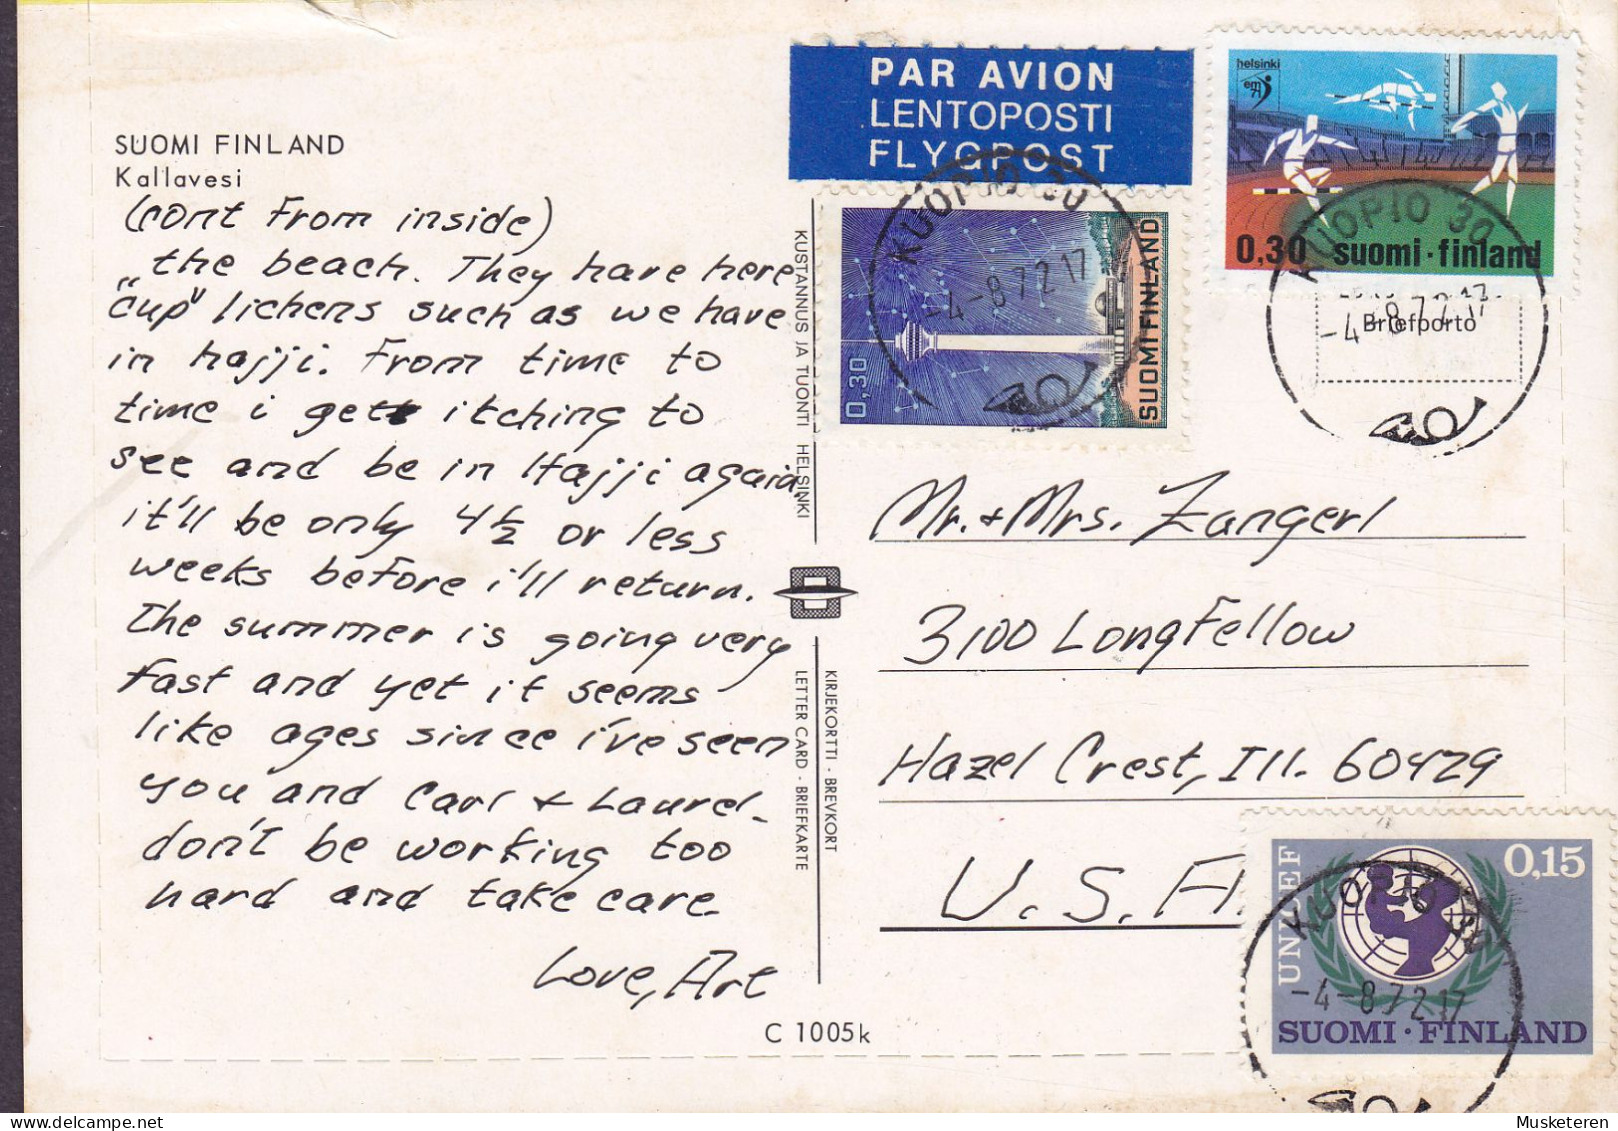 SUOMI FINLAND
Kallavesi
(cont from inside)
the beach. They have here
"cup" lichens such as we have
in hajji. From time to
time i get itching to
see and be in Hajji again
it'll be only 4½ or less
weeks before i'll return.
The summer is going very
fast and yet it seems
like ages since i've seen
you and Carl & Laurel.
don't be working too
hard and take care.
Love, Art
KUSTANNUS JA TUONTI HELSINKI
KIRJEKORTTI - BREVKORT
LETTER CARD - BRIEFKARTE
C 1005k
PAR AVION
LENTOPOSTI
FLYGPOST
KUOPIO 30
-4-8 72 17
0,30
SUOMI FINLAND
helsinki
em 71
0,30 suomi·finland
KUOPIO 30
-4-8 72 17
Briefporto
Mr. & Mrs. Zangerl
3100 Longfellow
Hazel Crest, Ill. 60429
U.S.A.
UNICEF
0,15
KUOPIO 30
-4-8 72 17
SUOMI·FINLAND
Musketeren